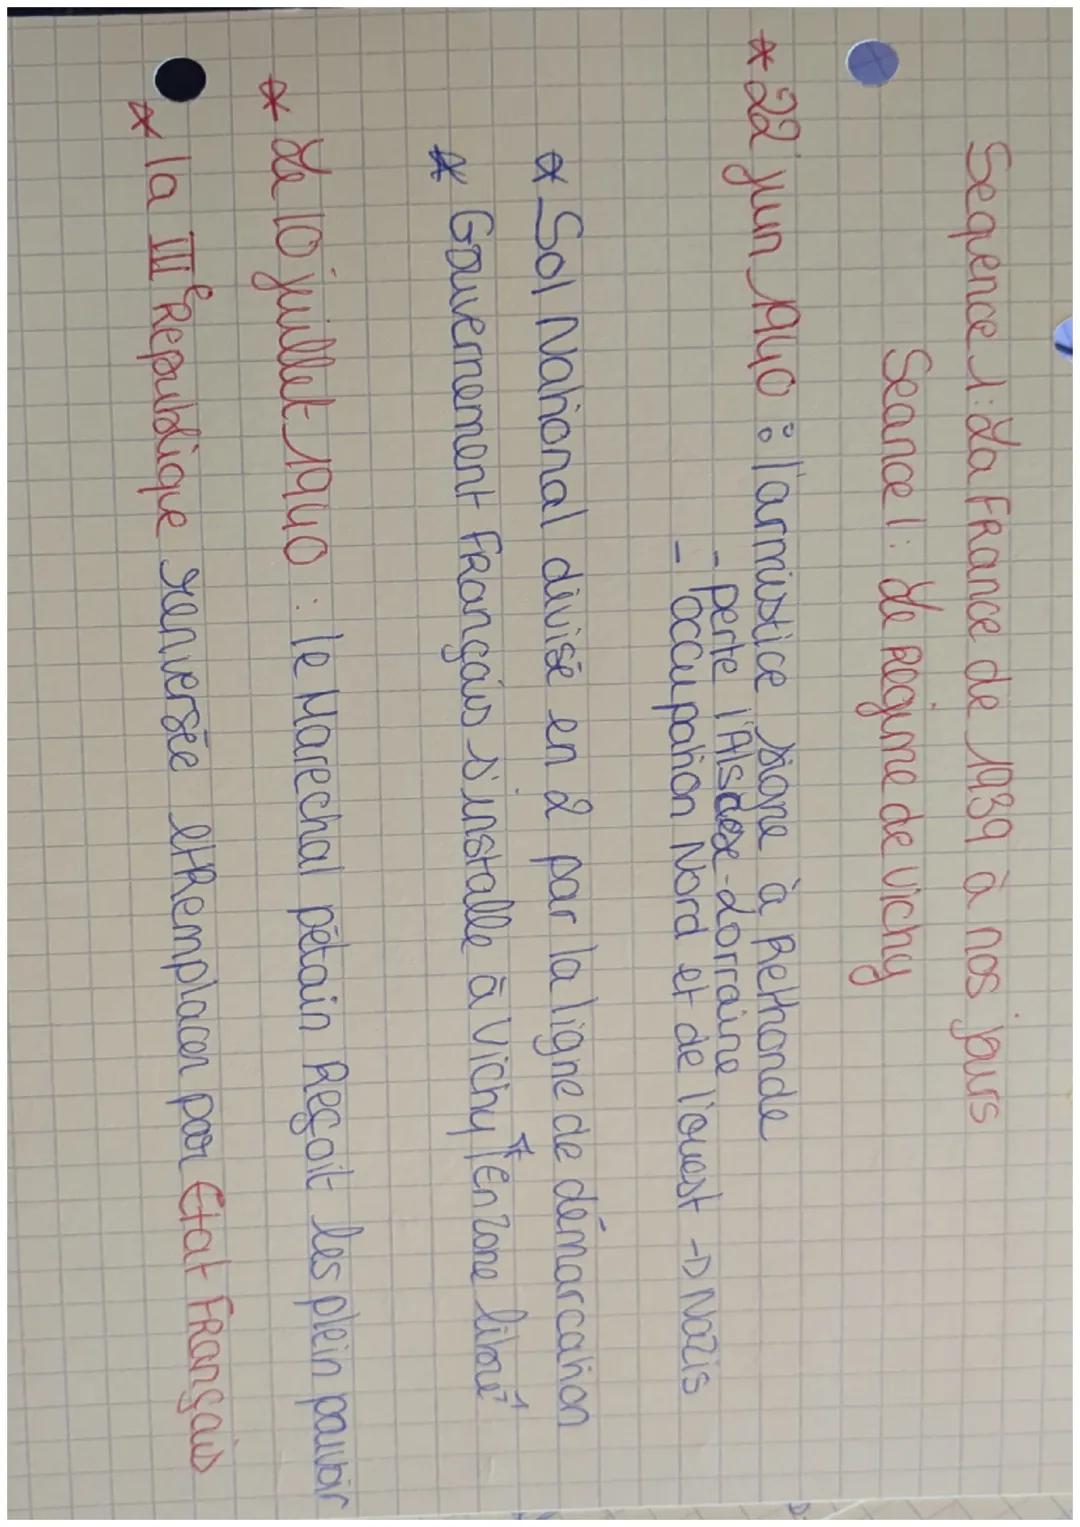 Sequence 1: La FRance de 1939 à nos jours
Seance 1: Le Régime de Vichy
* 22 juin 1940 : l'armistice signe à Rethonde
- perte l'Alsace-Lorraine
- l'occupation Nord et de l'ouest → Nazis
* Sol National divisé en 2 par la ligne de démarcation
* Gouvernement FRançais s'installe à Vichy "En zone libre"
* Le 10 juillet 1940 : le Marechal pétain Reçoit les plein pouvoir
* la IIIe Republique renversée et Remplacer par Etat FRançais